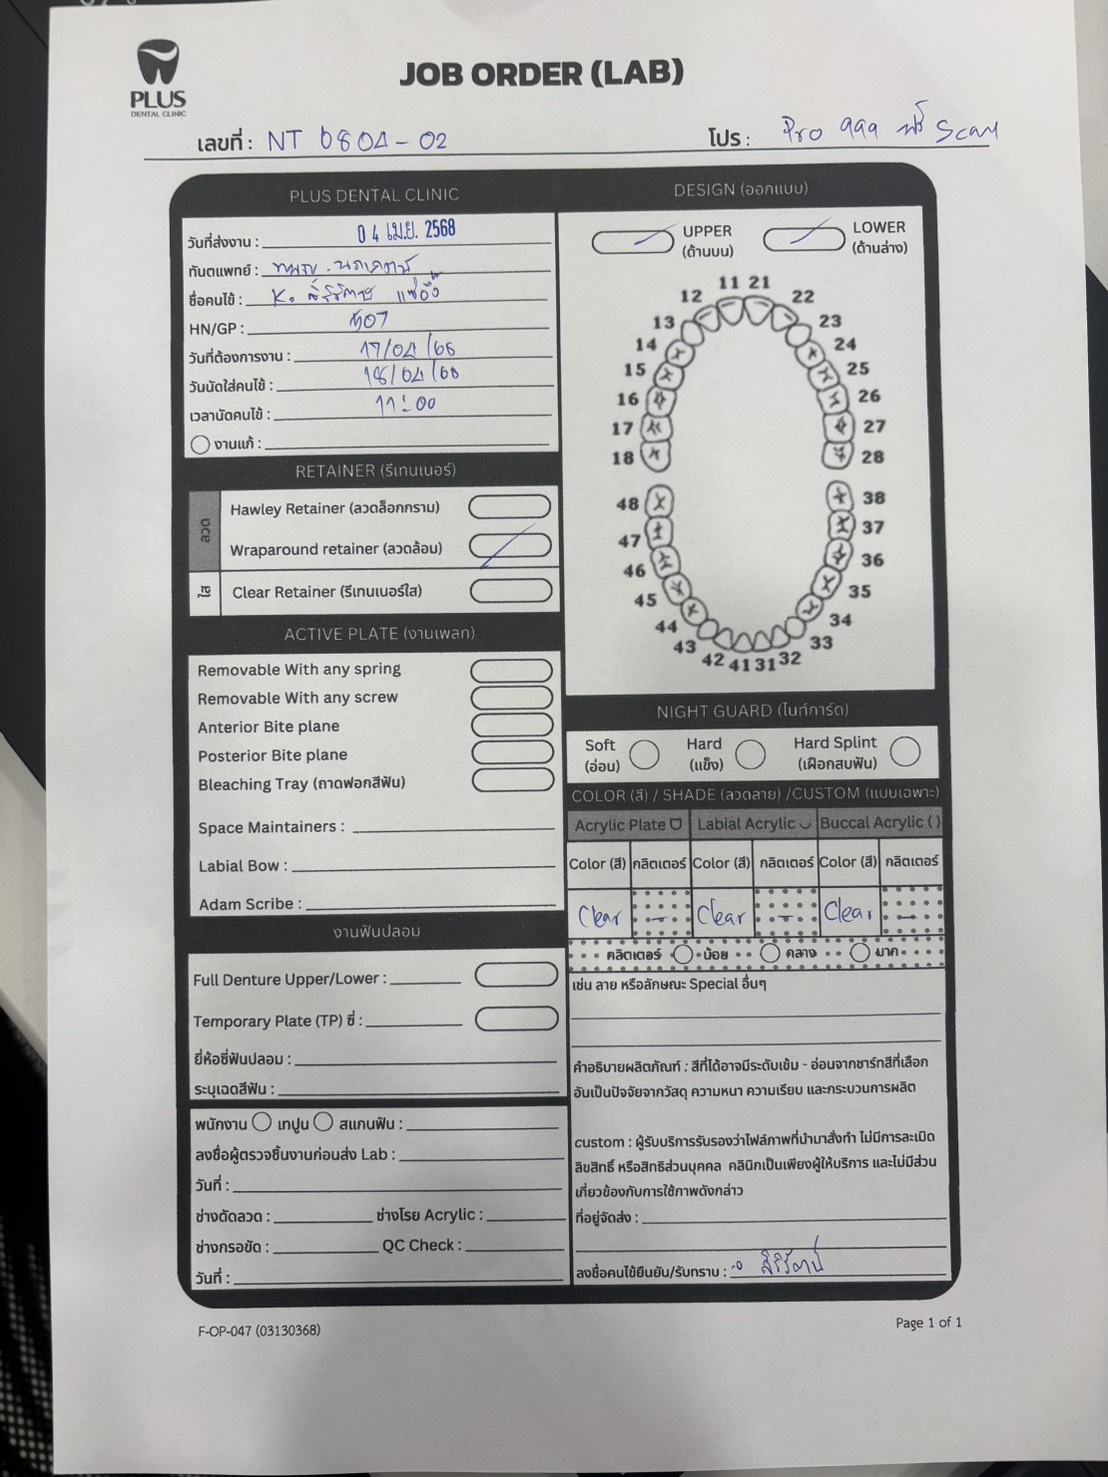 PLUS
DENTAL CLINIC
JOB ORDER (LAB)
เลขที่ : NT 0804-02
โปร : Pro 999 ฟรี Scan
PLUS DENTAL CLINIC
วันที่ส่งงาน : 04 เม.ย. 2568
ทันตแพทย์ :
ชื่อคนไข้ : K.
HN/GP :
วันที่ต้องการงาน : 17/04/68
วันนัดใส่คนไข้ : 18/04/68
เวลานัดคนไข้ : 11:00
งานแก้ :
RETAINER (รีเทนเนอร์)
ลวด
Hawley Retainer (ลวดล็อกกราม)
Wraparound retainer (ลวดล้อม)
ใส
Clear Retainer (รีเทนเนอร์ใส)
ACTIVE PLATE (งานเพลท)
Removable With any spring
Removable With any screw
Anterior Bite plane
Posterior Bite plane
Bleaching Tray (ถาดฟอกสีฟัน)
Space Maintainers :
Labial Bow :
Adam Scribe :
งานฟันปลอม
Full Denture Upper/Lower :
Temporary Plate (TP) ซี่ :
ยี่ห้อซี่ฟันปลอม :
ระบุเฉดสีฟัน :
พนักงาน เทปูน สแกนฟัน :
ลงชื่อผู้ตรวจชิ้นงานก่อนส่ง Lab :
วันที่ :
ช่างดัดลวด : ช่างโรย Acrylic :
ช่างกรอขัด : QC Check :
วันที่ :
DESIGN (ออกแบบ)
UPPER
(ด้านบน)
LOWER
(ด้านล่าง)
11 21
12 22
13 23
14 24
15 25
16 26
17 27
18 28
48 38
47 37
46 36
45 35
44 34
43 33
42 41 31 32
NIGHT GUARD (ไนท์การ์ด)
Soft
(อ่อน)
Hard
(แข็ง)
Hard Splint
(เฝือกสบฟัน)
COLOR (สี) / SHADE (ลวดลาย) /CUSTOM (แบบเฉพาะ)
Acrylic Plate Labial Acrylic Buccal Acrylic ( )
Color (สี) กลิตเตอร์ Color (สี) กลิตเตอร์ Color (สี) กลิตเตอร์
Clear - Clear - Clear -
กลิตเตอร์ น้อย กลาง มาก
เช่น ลาย หรือลักษณะ Special อื่นๆ
คำอธิบายผลิตภัณฑ์ : สีที่ได้อาจมีระดับเข้ม - อ่อนจากชาร์ทสีที่เลือก
อันเป็นปัจจัยจากวัสดุ ความหนา ความเรียบ และกระบวนการผลิต
custom : ผู้รับบริการรับรองว่าไฟล์ภาพที่นำมาสั่งทำ ไม่มีการละเมิด
ลิขสิทธิ์ หรือสิทธิส่วนบุคคล คลินิกเป็นเพียงผู้ให้บริการ และไม่มีส่วน
เกี่ยวข้องกับการใช้ภาพดังกล่าว
ที่อยู่จัดส่ง :
ลงชื่อคนไข้ยืนยัน/รับทราบ :
F-OP-047 (03130368)
Page 1 of 1